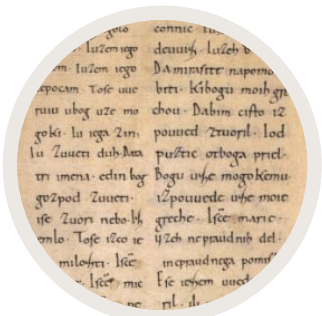 golo
Iuzem iego
Iuzem iego
epocam. Tose uue
ruiu ubog uze mo
goki. Iu iega Zin.
Iu Zuueti duh. Data
tri imena. edin bog
gozpod Zuueti.
ise Zuori nebo.
emlo. Tose izco ie
milosti. Isce
Isce
ne
connic.
deuuih. Iuzeh b
Da mirastte napomo
biti. Kibogu moih gre
chou. Dabim cisto iz
pouued ztuoril. Iod
puztic otboga priel.
Bogu uzhe mogokemu
izpouuede uzhe moie
greche. Isce marie.
uzeh nepraudnih del.
inepraudnega pomis
Ese iezem uued
ril.